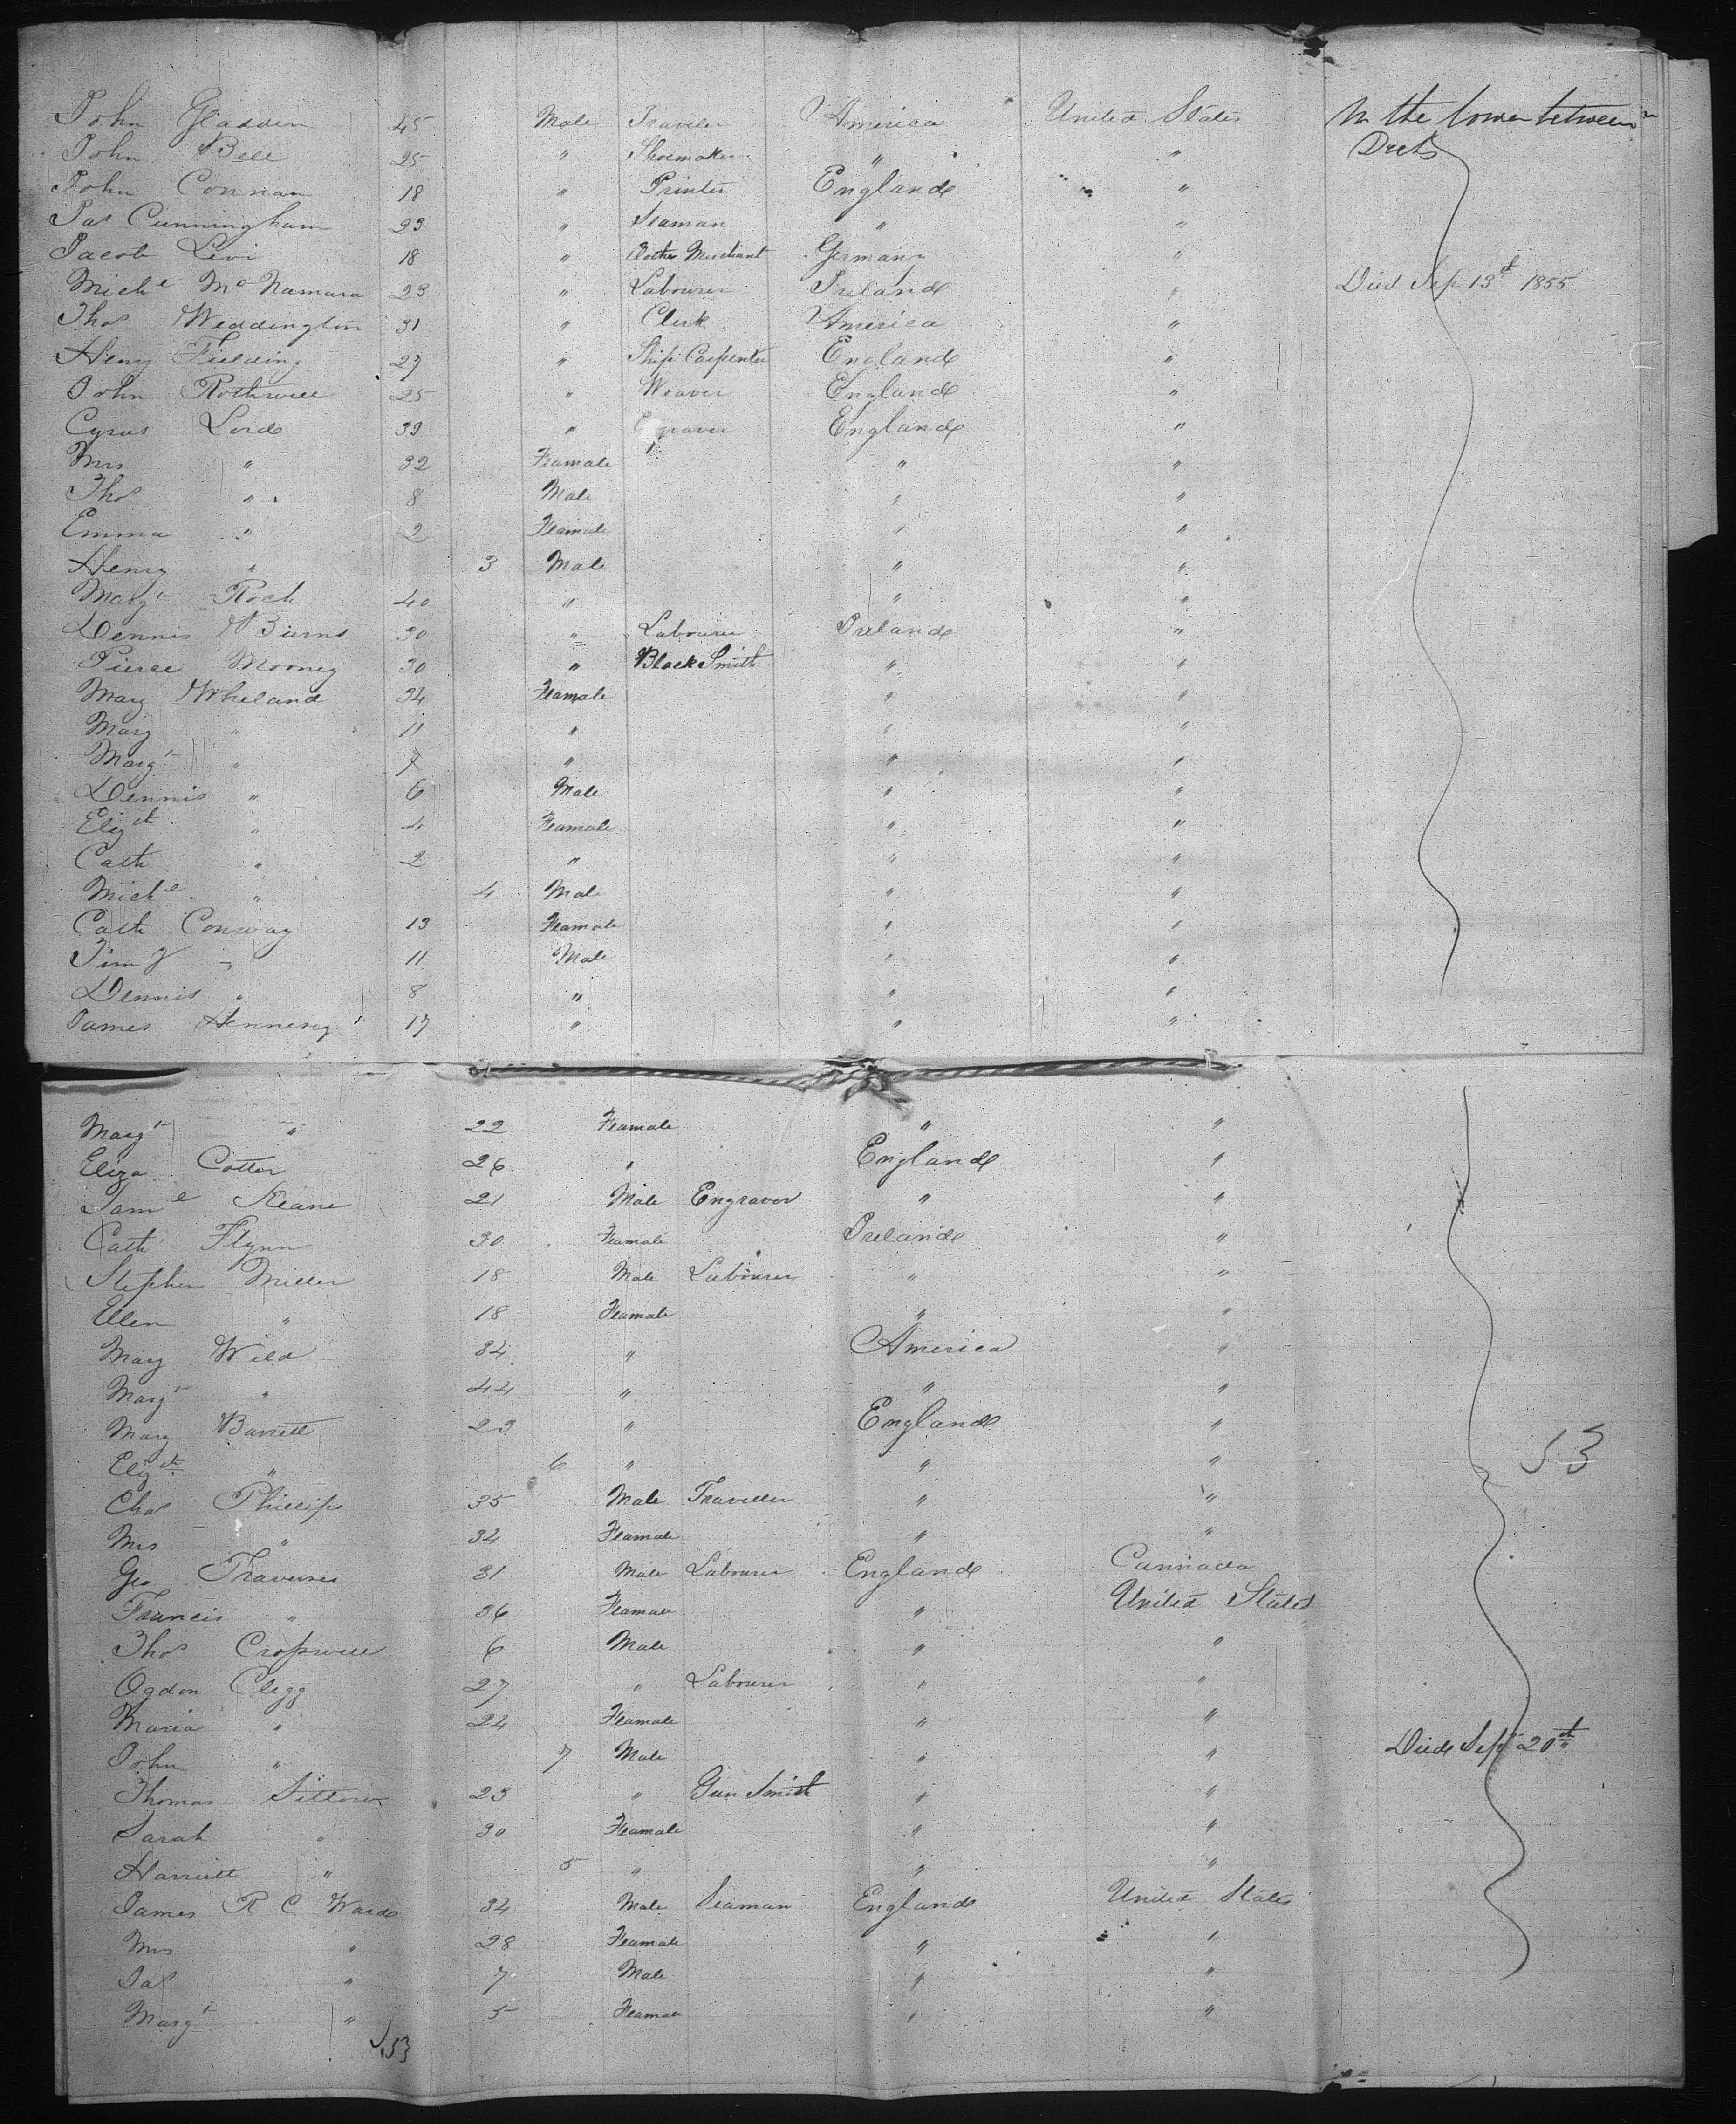 John Gladden 45 Male Traveler America United States In the lower between
John Bell 25 " Shoemaker " " Decks
John Connan 18 " Printer England "
Jas Cunningham 23 " Seaman " "
Jacob Levi 18 " Clothes Merchant Germany "
Michl McNamara 23 " Labourer Ireland " Died Sep 13th 1855
Thos Weddington 31 " Clerk America "
Henry Fielding 27 " Ship Carpenter England "
John Rothwell 25 " Weaver England "
Cyrus Lord 39 " England "
Mrs " 32 Feamale " "
Thos " 8 Male " "
Emma " 2 Feamale " "
Henry " 3 Male " "
Margt Roch 40 " " "
Dennis Burns 30 " Labourer Ireland "
Pierce Mooney 30 " Black Smith " "
Mary Wheland 34 Feamale " "
Mary " 11 " " "
Margt " 7 " " "
Dennis " 6 Male " "
Elizth " 4 Feamale " "
Cath " 2 " " "
Michl " 4 Male " "
Cath Conway 13 Feamale " "
Timy " 11 Male " "
Dennis " 8 " " "
James Hennesy 17 " " "
Margt " 22 Feamale " "
Eliza Cotter 26 " England "
Saml Keane 21 Male Engraver " "
Cath Flynn 30 Feamale Ireland "
Stephen Miller 18 Male Labourer " "
Ellen " 18 Feamale " "
Mary Wild 34 " America "
Margt " 44 " " "
Mary Barrett 23 " England "
Elizth " 6 " " " 53
Chas Phillips 35 Male Traveller " "
Mrs " 34 Feamale " "
Geo Travers 31 Male Labourer England Cannada
Francis " 36 Feamale " United States
Thos Cropwell 6 Male " "
Ogdon Clegg 27 " Labourer " "
Maria " 24 Feamale " "
John " 7 Male " " Died Sept 20th
Thomas 23 " Gun Smith " "
Sarah " 30 Feamale " "
Harriett " 5 " " "
James R C Ward 34 Male Seaman England United States
Mrs " 28 Feamale " "
Jas " 7 Male " "
Margt " 5 Feamale " "
53